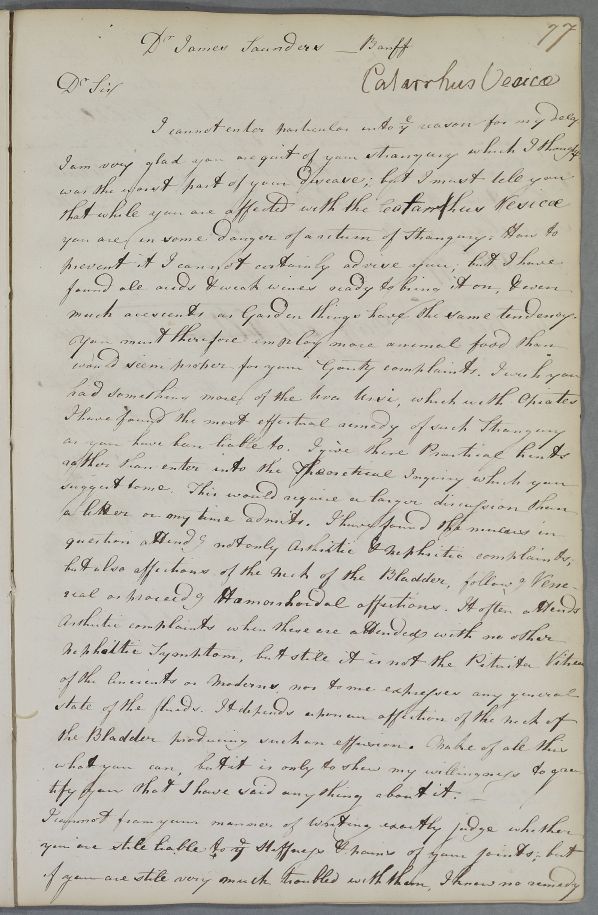 77
Dr James Saunders — Banff
Catarrhus Vesicæ
Dr Sir
I cannot enter particular into ye reason for my delay
I am very glad you are quit of your strangury which I thought
was the worst part of your Disease; but I must tell you
that while you are affected with the Catarrhus Vesicæ
you are in some danger of a return of Strangury. How to
prevent it I cannot certainly advise you, but I have
found all acids & weak wines ready to bring it on, & even
much acescents as Garden things have the same tendency.
You must therefore employ more animal food than
would seem proper for your Gouty complaints. I wish you
had something more of the Uva Ursi, which with Opiates
I have found the most effectual remedy of such Strangury
as you have been liable to. I give these Practical hints
rather than enter into the Theoretical Inquiry which you
suggest to me. This would require a larger discussion than
a letter or my time admits. I have found the mucus in
question attendg not only Arthritic & Nephritic complaints,
but also affections of the neck of the Bladder, followg Vene-
real or proceedg Hæmorrhoidal affections. It often attends
Arthritic complaints when these are attended with no other
Nephritic Symptom, but still it is not the Pituita Vitrea
of the Ancients or Moderns, nor to me expresses any general
state of the fluids. It depends upon an affection of the neck of
the Bladder producing such an effusion. Make of all this
what you can, but it is only to shew my willingness to gra-
tify you that I have said any thing about it. —
I cannot from your manner of writing exactly judge whether
you are still liable to ye stiffness & pains of your joints; but
if you are still very much troubled with them, I know no remedy